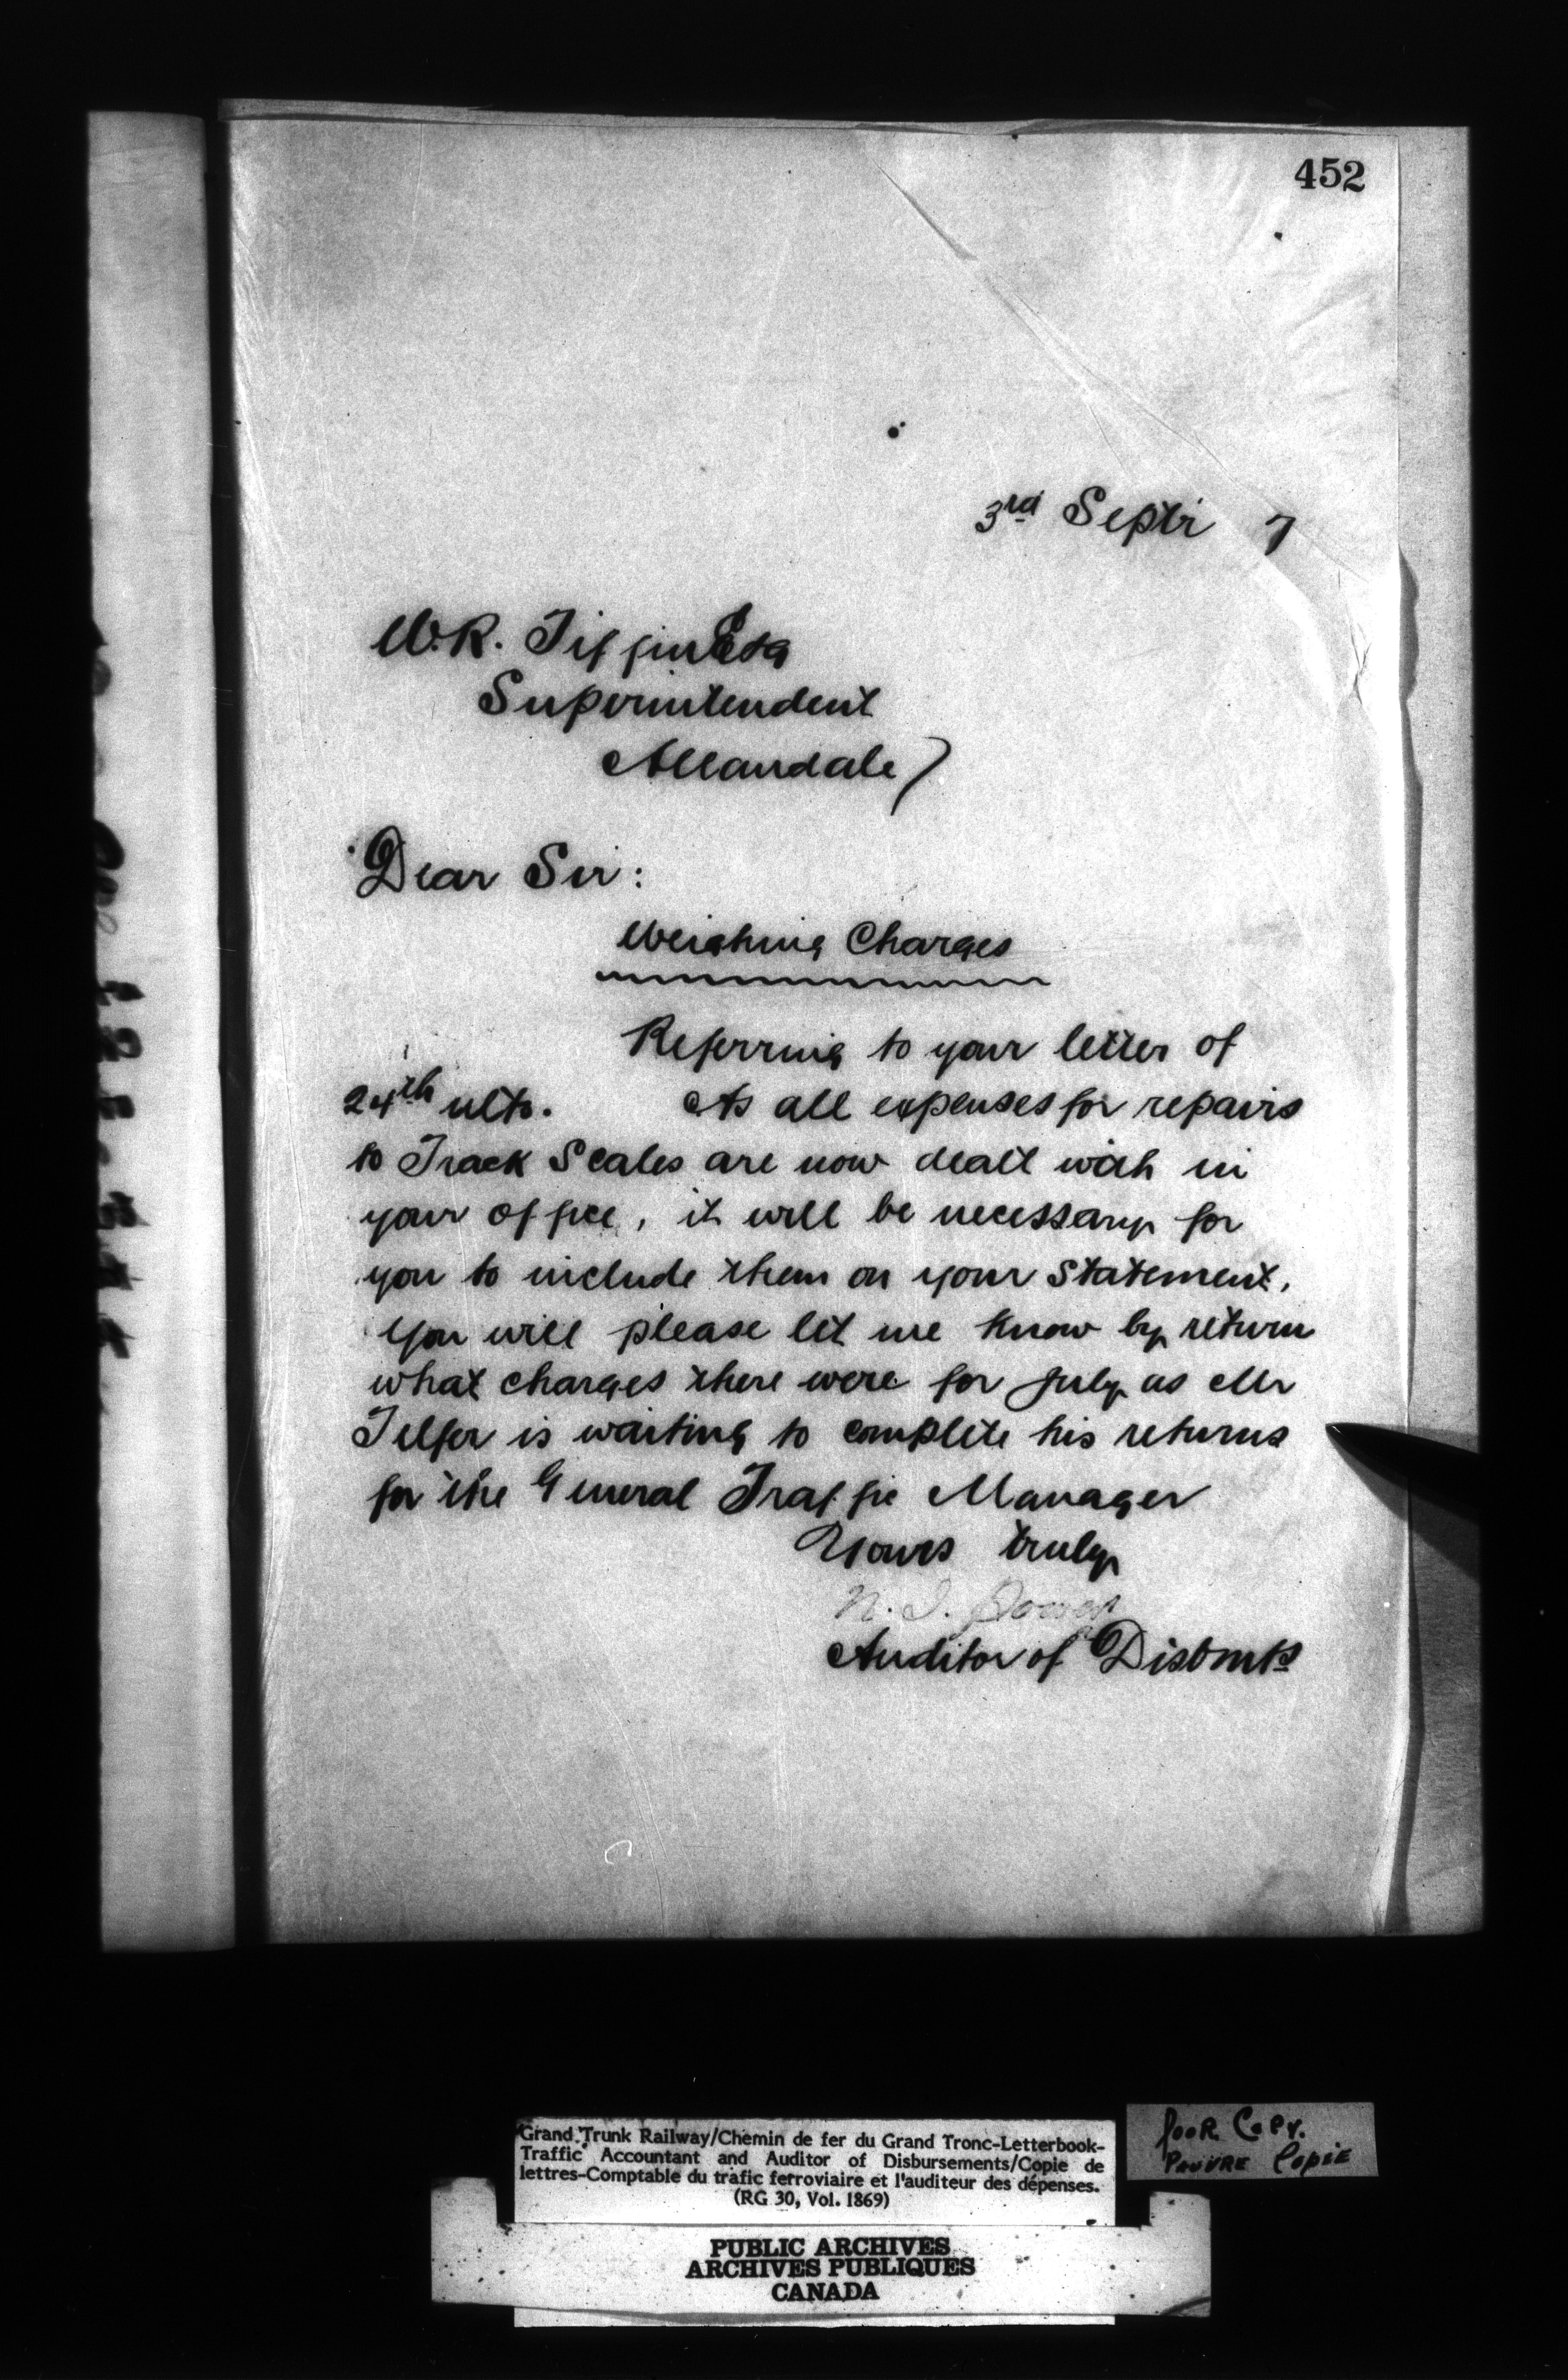 452
3rd Septr 7
W.R. Tiffin Esq
Superintendent
Allandale
Dear Sir:
Weighing Charges
Referring to your letter of
24th ulto. As all expenses for repairs
to Track Scales are now dealt with in
your office, it will be necessary for
you to include them on your statement.
You will please let me know by return
what charges there were for July as Mr
Telfer is waiting to complete his returns
for the General Traffic Manager
Yours truly
Auditor of Disbmts
Grand Trunk Railway/Chemin de fer du Grand Tronc-Letterbook-
Traffic Accountant and Auditor of Disbursements/Copie de
lettres-Comptable du trafic ferroviaire et l'auditeur des dépenses.
(RG 30, Vol. 1869)
Poor Copy.
Pauvre Copie
PUBLIC ARCHIVES
ARCHIVES PUBLIQUES
CANADA